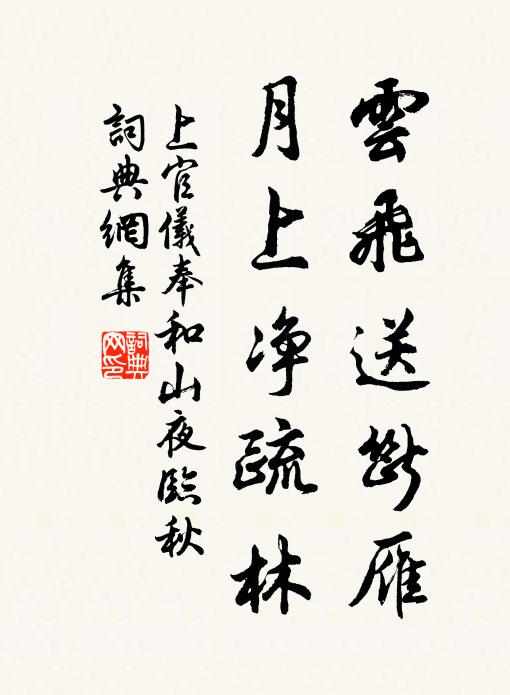 雲飛送斷雁
月上净疏林
上官儀奉和山夜臨秋
詞典網集
詞典網印